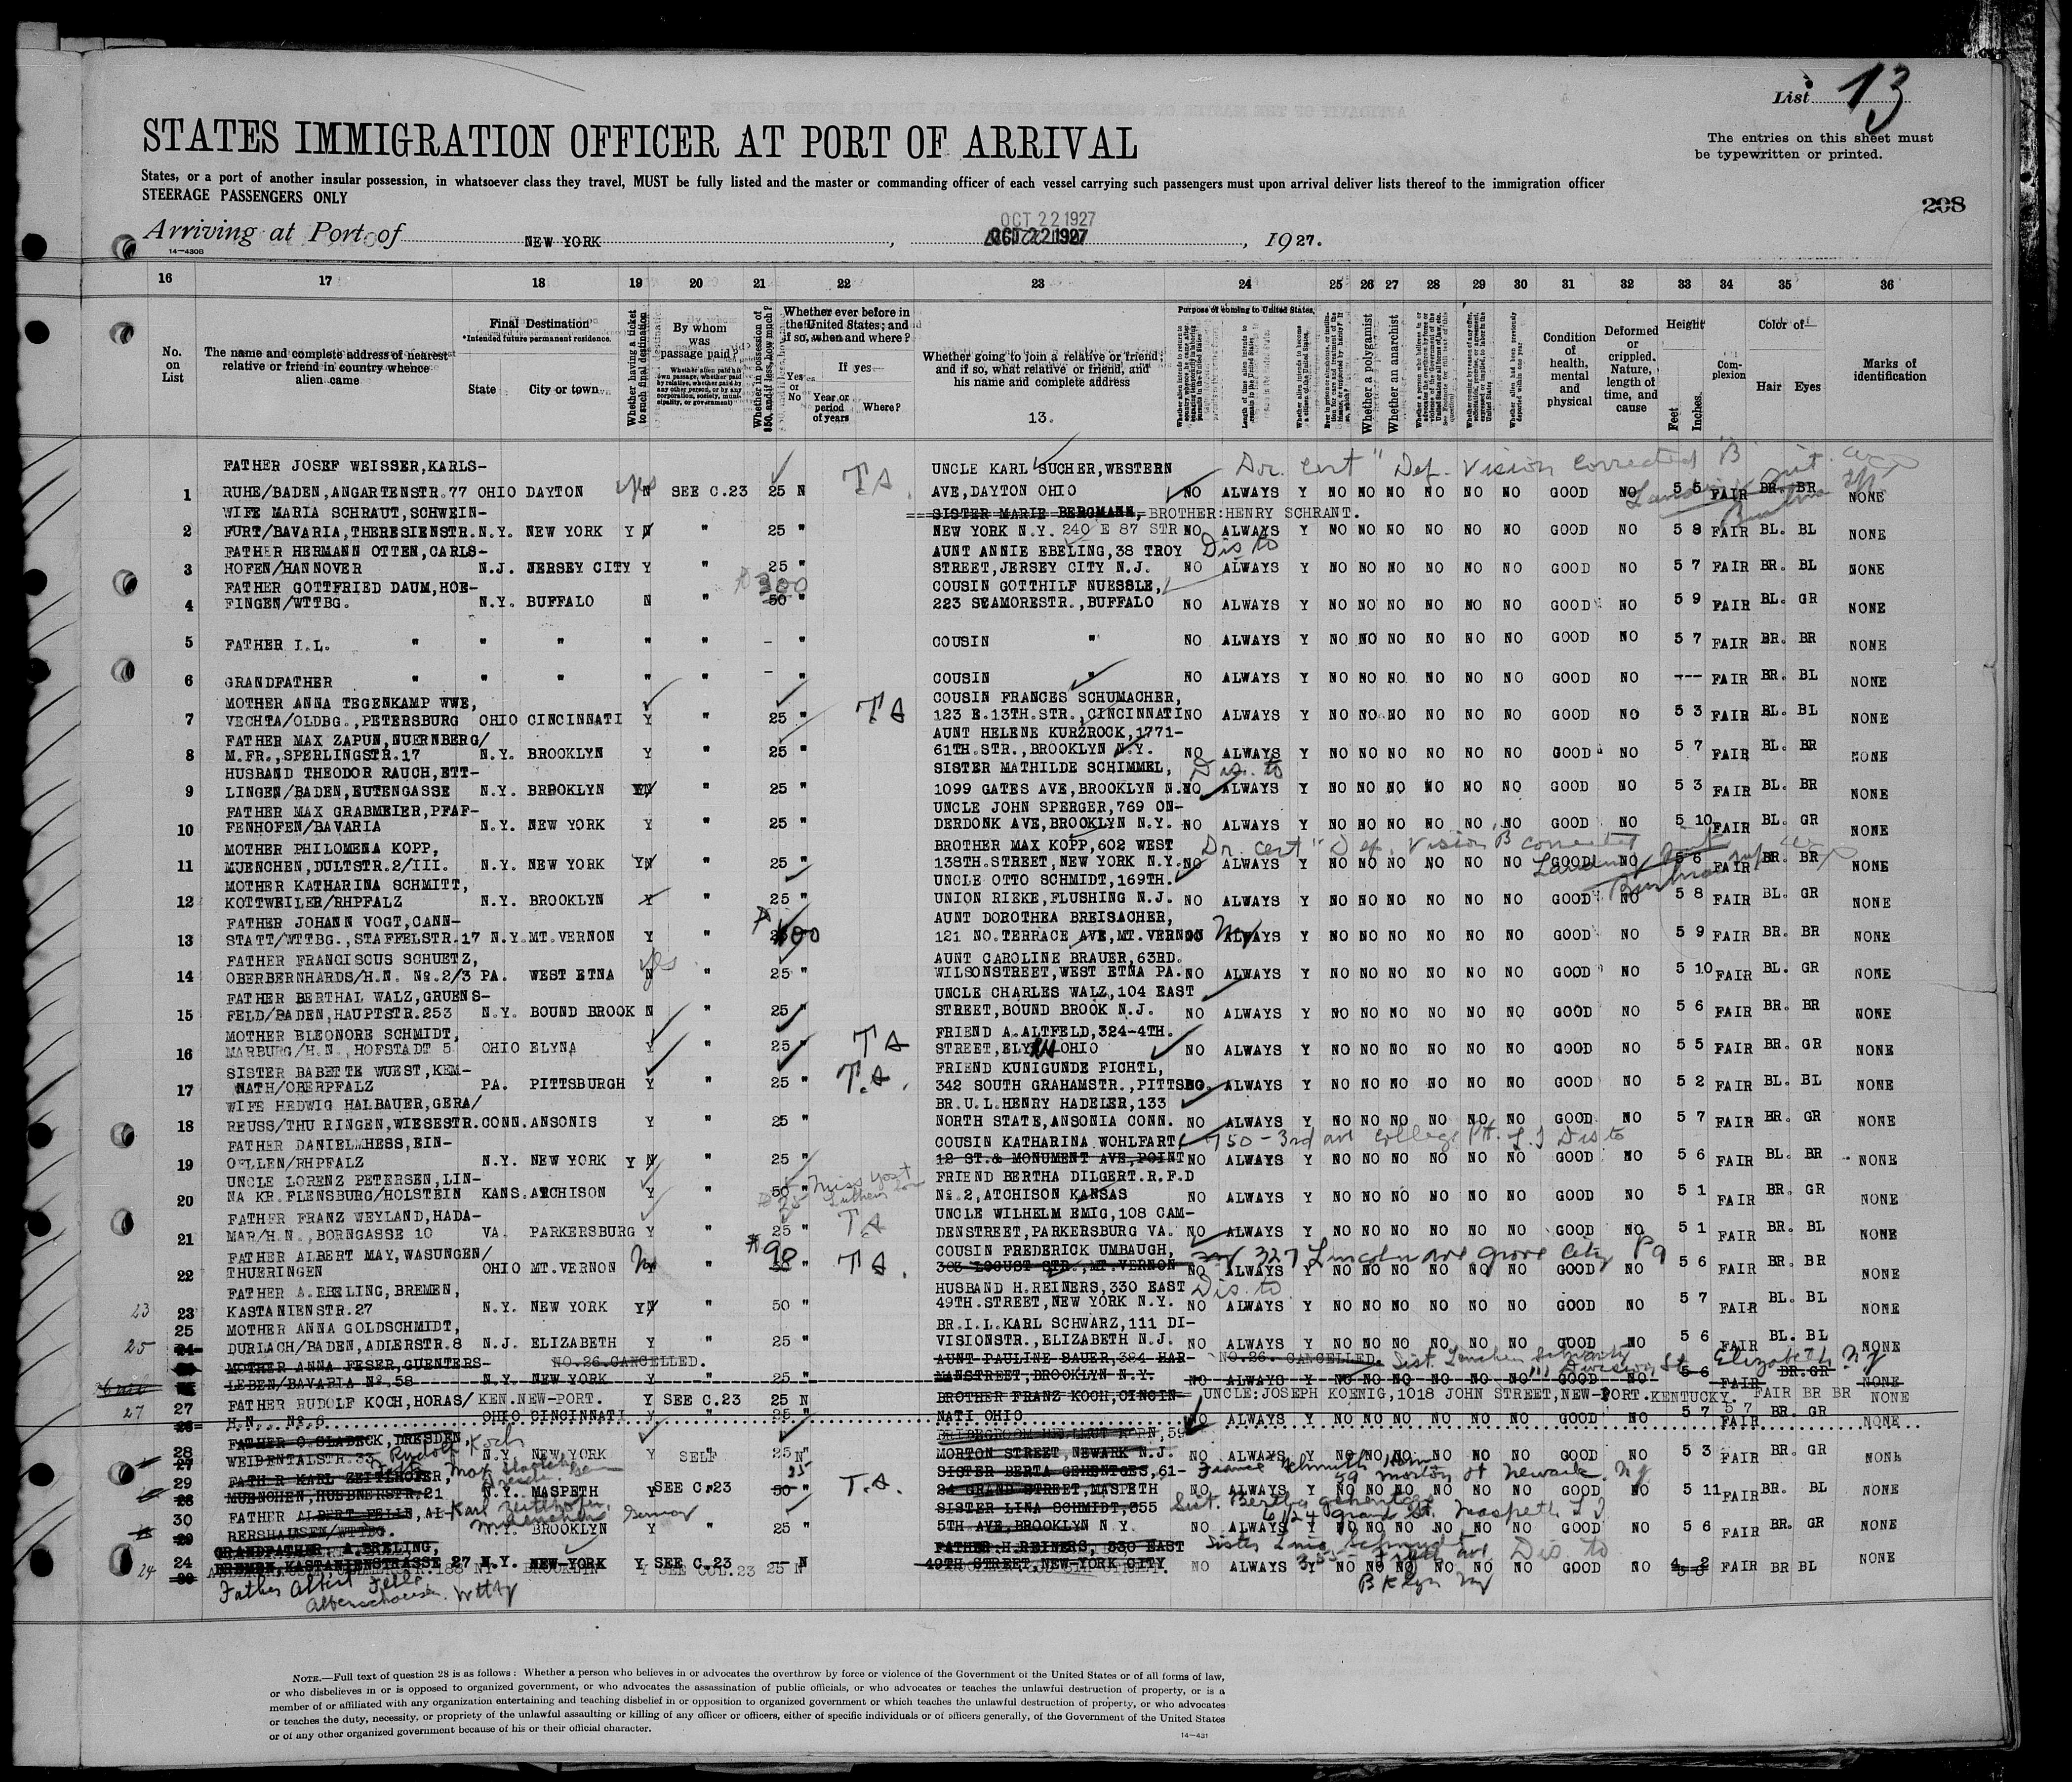 List 13
STATES IMMIGRATION OFFICER AT PORT OF ARRIVAL
The entries on this sheet must
be typewritten or printed.
States, or a port of another insular possession, in whatsoever class they travel, MUST be fully listed and the master or commanding officer of each vessel carrying such passengers must upon arrival deliver lists thereof to the immigration officer
STEERAGE PASSENGERS ONLY
208
OCT 22 1927
Arriving at Port of NEW YORK, OCT 22 1927, 1927.
14-430B
16 17 18 19 20 21 22 23 24 25 26 27 28 29 30 31 32 33 34 35 36
No. on List
The name and complete address of nearest relative or friend in country whence alien came
Final Destination
*Intended future permanent residence.
State City or town
Whether having a ticket to such final destination
By whom was passage paid?
Whether in possession of $50, and if less, how much?
Whether ever before in the United States; and if so, when and where?
Yes or No
If yes—
Year or period of years
Where?
Whether going to join a relative or friend; and if so, what relative or friend, and his name and complete address
13.
Purpose of coming to United States.
Whether a polygamist
Whether an anarchist
Condition of health, mental and physical
Deformed or crippled. Nature, length of time, and cause
Height
Feet Inches
Complexion
Color of—
Hair Eyes
Marks of identification
FATHER JOSEF WEISSER,KARLS- UNCLE KARL SUCHER,WESTERN Dr. Cert "Def. Vision corrected B
1 RUHE/BADEN,ANGARTENSTR.77 OHIO DAYTON yes N SEE C.23 25 N TA AVE,DAYTON OHIO NO ALWAYS Y NO NO NO NO NO NO GOOD NO 5 5 FAIR BR. BR NONE
WIFE MARIA SCHRAUT,SCHWEIN- SISTER MARIE BERGMANN, BROTHER:HENRY SCHRANT.
2 FURT/BAVARIA,THERESIENSTR. N.Y. NEW YORK Y N " 25 " NEW YORK N.Y. 240 E 87 STR NO ALWAYS Y NO NO NO NO NO NO GOOD NO 5 8 FAIR BL. BL NONE
FATHER HERMANN OTTEN,CARLS- AUNT ANNIE EBELING,38 TROY Dis to
3 HOFEN/HANNOVER N.J. JERSEY CITY Y " 25 " STREET,JERSEY CITY N.J. NO ALWAYS Y NO NO NO NO NO NO GOOD NO 5 7 FAIR BR. BL NONE
FATHER GOTTFRIED DAUM,HOE- 300 COUSIN GOTTHILF NUESSLE,
4 FINGEN/WTTBG. N.Y. BUFFALO N " 50 " 223 SEAMORESTR.,BUFFALO NO ALWAYS Y NO NO NO NO NO NO GOOD NO 5 9 FAIR BL. GR NONE
5 FATHER I.L. " " " " " - " COUSIN " NO ALWAYS Y NO NO NO NO NO NO GOOD NO 5 7 FAIR BR. BR NONE
6 GRANDFATHER " " " " " - " COUSIN " NO ALWAYS Y NO NO NO NO NO NO GOOD NO --- FAIR BR. BL NONE
MOTHER ANNA TEGENKAMP WWE, COUSIN FRANCES SCHUMACHER,
7 VECHTA/OLDBG.,PETERSBURG OHIO CINCINNATI Y " 25 " TA 123 E.13TH.STR.,CINCINNATI NO ALWAYS Y NO NO NO NO NO NO GOOD NO 5 3 FAIR BL. BL NONE
FATHER MAX ZAPUN,NUERNBERG/ AUNT HELENE KURZROCK,1771-
8 M.FR.,SPERLINGSTR.17 N.Y. BROOKLYN Y " 25 " 61TH.STR.,BROOKLYN N.Y. NO ALWAYS Y NO NO NO NO NO NO GOOD NO 5 7 FAIR BL. BR NONE
HUSBAND THEODOR RAUCH,ETT- SISTER MATHILDE SCHIMMEL, Dis. to
9 LINGEN/BADEN,EUTENGASSE N.Y. BROOKLYN YN " 25 " 1099 GATES AVE,BROOKLYN N.Y. NO ALWAYS Y NO NO NO NO NO NO GOOD NO 5 3 FAIR BL. BR NONE
FATHER MAX GRABMEIER,PFAF- UNCLE JOHN SPERGER,769 ON-
10 FENHOFEN/BAVARIA N.Y. NEW YORK Y " 25 " DERDONK AVE,BROOKLYN N.Y. NO ALWAYS Y NO NO NO NO NO NO GOOD NO 5 10 FAIR BL. GR NONE
MOTHER PHILOMENA KOPP, BROTHER MAX KOPP,602 WEST Dr. cert "Def. Vision B corrected
11 MUENCHEN,DULTSTR.2/III. N.Y. NEW YORK YN " 25 " 138TH.STREET,NEW YORK N.Y. NO ALWAYS Y NO NO NO NO NO NO GOOD NO 5 6 FAIR BR. BR NONE
MOTHER KATHARINA SCHMITT, UNCLE OTTO SCHMIDT,169TH.
12 KOTTWEILER/RHPFALZ N.Y. BROOKLYN Y " 25 " UNION RIEKE,FLUSHING N.J. NO ALWAYS Y NO NO NO NO NO NO GOOD NO 5 8 FAIR BL. GR NONE
FATHER JOHANN VOGT,CANN- AUNT DOROTHEA BREISACHER,
13 STATT/WTTBG.,STAFFELSTR.17 N.Y. MT.VERNON Y " 25 100 121 NO.TERRACE AVE,MT.VERNON NO NY ALWAYS Y NO NO NO NO NO NO GOOD NO 5 9 FAIR BR. BR NONE
FATHER FRANCISCUS SCHUETZ, yes AUNT CAROLINE BRAUER,63RD.
14 OBERBERNHARDS/H.N. No.2/3 PA. WEST ETNA N " 25 " WILSONSTREET,WEST ETNA PA. NO ALWAYS Y NO NO NO NO NO NO GOOD NO 5 10 FAIR BL. GR NONE
FATHER BERTHAL WALZ,GRUENS- UNCLE CHARLES WALZ,104 EAST
15 FELD/BADEN,HAUPTSTR.253 N.Y. BOUND BROOK N " 25 " STREET,BOUND BROOK N.J. NO ALWAYS Y NO NO NO NO NO NO GOOD NO 5 6 FAIR BR. BR NONE
MOTHER ELEONORE SCHMIDT, FRIEND A.ALTFELD,324-4TH.
16 MARBURG/H.N.,HOFSTADT 5 OHIO ELYNA Y " 25 " TA STREET,ELY OHIO NO ALWAYS Y NO NO NO NO NO NO GOOD NO 5 5 FAIR BR. GR NONE
SISTER BABETTE WUEST,KEM- FRIEND KUNIGUNDE FICHTL,
17 NATH/OBERPFALZ PA. PITTSBURGH Y " 25 " T.A. 342 SOUTH GRAHAMSTR.,PITTSBG. NO ALWAYS Y NO NO NO NO NO NO GOOD NO 5 2 FAIR BL. BL NONE
WIFE HEDWIG HALBAUER,GERA/ BR.U.L.HENRY HADELER,133
18 REUSS/THU RINGEN,WIESESTR. CONN. ANSONIS Y " 25 " NORTH STATE,ANSONIA CONN. NO ALWAYS Y NO NO NO NO NO NO GOOD NO 5 7 FAIR BR. GR NONE
FATHER DANIEL HESS,EIN- COUSIN KATHARINA WOHLFART 750-3rd ave College Pt. L I Dis to
19 OELLEN/RHPFALZ N.Y. NEW YORK Y N " 25 " 12 ST.& MONUMENT AVE,POINT NO ALWAYS Y NO NO NO NO NO NO GOOD NO 5 6 FAIR BL. BR NONE
UNCLE LORENZ PETERSEN,LIN- Miss Yost FRIEND BERTHA DILGERT.R.F.D
20 NA KR.FLENSBURG/HOLSTEIN KANS. ATCHISON Y " 50 " No.2,ATCHISON KANSAS NO ALWAYS Y NO NO NO NO NO NO GOOD NO 5 1 FAIR BR. GR NONE
FATHER FRANZ WEYLAND,HADA- UNCLE WILHELM EMIG,108 CAM-
21 MAR/H.N.,BORNGASSE 10 VA. PARKERSBURG Y " 25 " TA DENSTREET,PARKERSBURG VA. NO ALWAYS Y NO NO NO NO NO NO GOOD NO 5 1 FAIR BR. BL NONE
FATHER ALBERT MAY,WASUNGEN/ $90 COUSIN FREDERICK UMBAUGH, 327 Lincoln ave Grove City Pa
22 THUERINGEN OHIO MT.VERNON " TA. 303 LOCUST STR.,MT.VERNON NO ALWAYS Y NO NO NO NO NO NO GOOD NO 5 6 FAIR BR. BR NONE
FATHER A.EBELING,BREMEN, HUSBAND H.REINERS,330 EAST Dis. to
23 23 KASTANIENSTR.27 N.Y. NEW YORK YN 50 " 49TH.STREET,NEW YORK N.Y. NO ALWAYS Y NO NO NO NO NO NO GOOD NO 5 7 FAIR BL. BL NONE
25 MOTHER ANNA GOLDSCHMIDT, BR.I.L.KARL SCHWARZ,111 DI-
25 24 DURLACH/BADEN,ADLERSTR.8 N.J. ELIZABETH Y " 25 " VISIONSTR.,ELIZABETH N.J. NO ALWAYS Y NO NO NO NO NO NO GOOD NO 5 6 FAIR BL. BL NONE
MOTHER ANNA FESER,GUENTERS- NO.26.CANCELLED. AUNT PAULINE BAUER,384 HAR- NO.26. CANCELLED. Elizabeth NJ
LEBEN/BAVARIA No.58 N.Y. NEW YORK 25 " MANSTREET,BROOKLYN N.Y. NO ALWAYS Y NO NO NO NO NO NO GOOD NO 5 6 FAIR BR.GR NONE
27 FATHER RUDOLF KOCH,HORAS/ KEN.NEW-PORT. Y SEE C.23 25 N BROTHER FRANZ KOCH,CINCIN- UNCLE:JOSEPH KOENIG,1018 JOHN STREET,NEW-PORT.KENTUCKY. FAIR BR BR NONE
27 H.N. No.6 OHIO CINCINNATI Y " 25 " NATI OHIO NO ALWAYS Y NO NO NO NO NO NO GOOD NO 5 7 FAIR BR. GR NONE
FATHER O.SLADECK,DRESDEN, BRIDEGROOM HELLMUT HORN,59
28 WEIDENTALSTR.33 N.Y. NEW YORK Y SELF 25 N MORTON STREET,NEWARK N.J. NO ALWAYS Y NO NO NO NO NO NO GOOD NO 5 3 FAIR BR. GR NONE
29 FATHER KARL ZEITLHOFER, SISTER BERTA GEHENTGES,61- 59 Morton St Newark NJ
MUENCHEN,HUEBNERSTR.21 N.Y. MASPETH Y SEE C.23 50 " T.A. 24 GRAND STREET,MASPETH NO ALWAYS Y NO NO NO NO NO NO GOOD NO 5 11 FAIR BR. BL NONE
30 FATHER ALBERT FELLN,AL- Karl Zeitlhofer, SISTER LINA SCHMIDT,355 6124 Grand St. Maspeth L I
BERSHAUSEN/WTTBG. N.Y. BROOKLYN Y " 25 " 5TH AVE,BROOKLYN N.Y. NO ALWAYS Y NO NO NO NO NO NO GOOD NO 5 6 FAIR BR. GR NONE
GRANDFATHER A.EBELING, FATHER:H.REINERS, 330 EAST Dis to
24 24 BREMEN,KASTANIENSTRASSE 27 N.Y. NEW-YORK Y SEE C.23 -- N 49TH STREET,NEW-YORK CITY NO ALWAYS Y NO NO NO NO NO NO GOOD NO FAIR BR BL NONE
Father Albert
Bklyn NY
NOTE.—Full text of question 28 is as follows: Whether a person who believes in or advocates the overthrow by force or violence of the Government of the United States or of all forms of law,
or who disbelieves in or is opposed to organized government, or who advocates the assassination of public officials, or who advocates or teaches the unlawful destruction of property, or is a
member of or affiliated with any organization entertaining and teaching disbelief in or opposition to organized government or which teaches the unlawful destruction of property, or who advocates
or teaches the duty, necessity, or propriety of the unlawful assaulting or killing of any officer or officers, either of specific individuals or of officers generally, of the Government of the United States
or of any other organized government because of his or their official character.
14-431